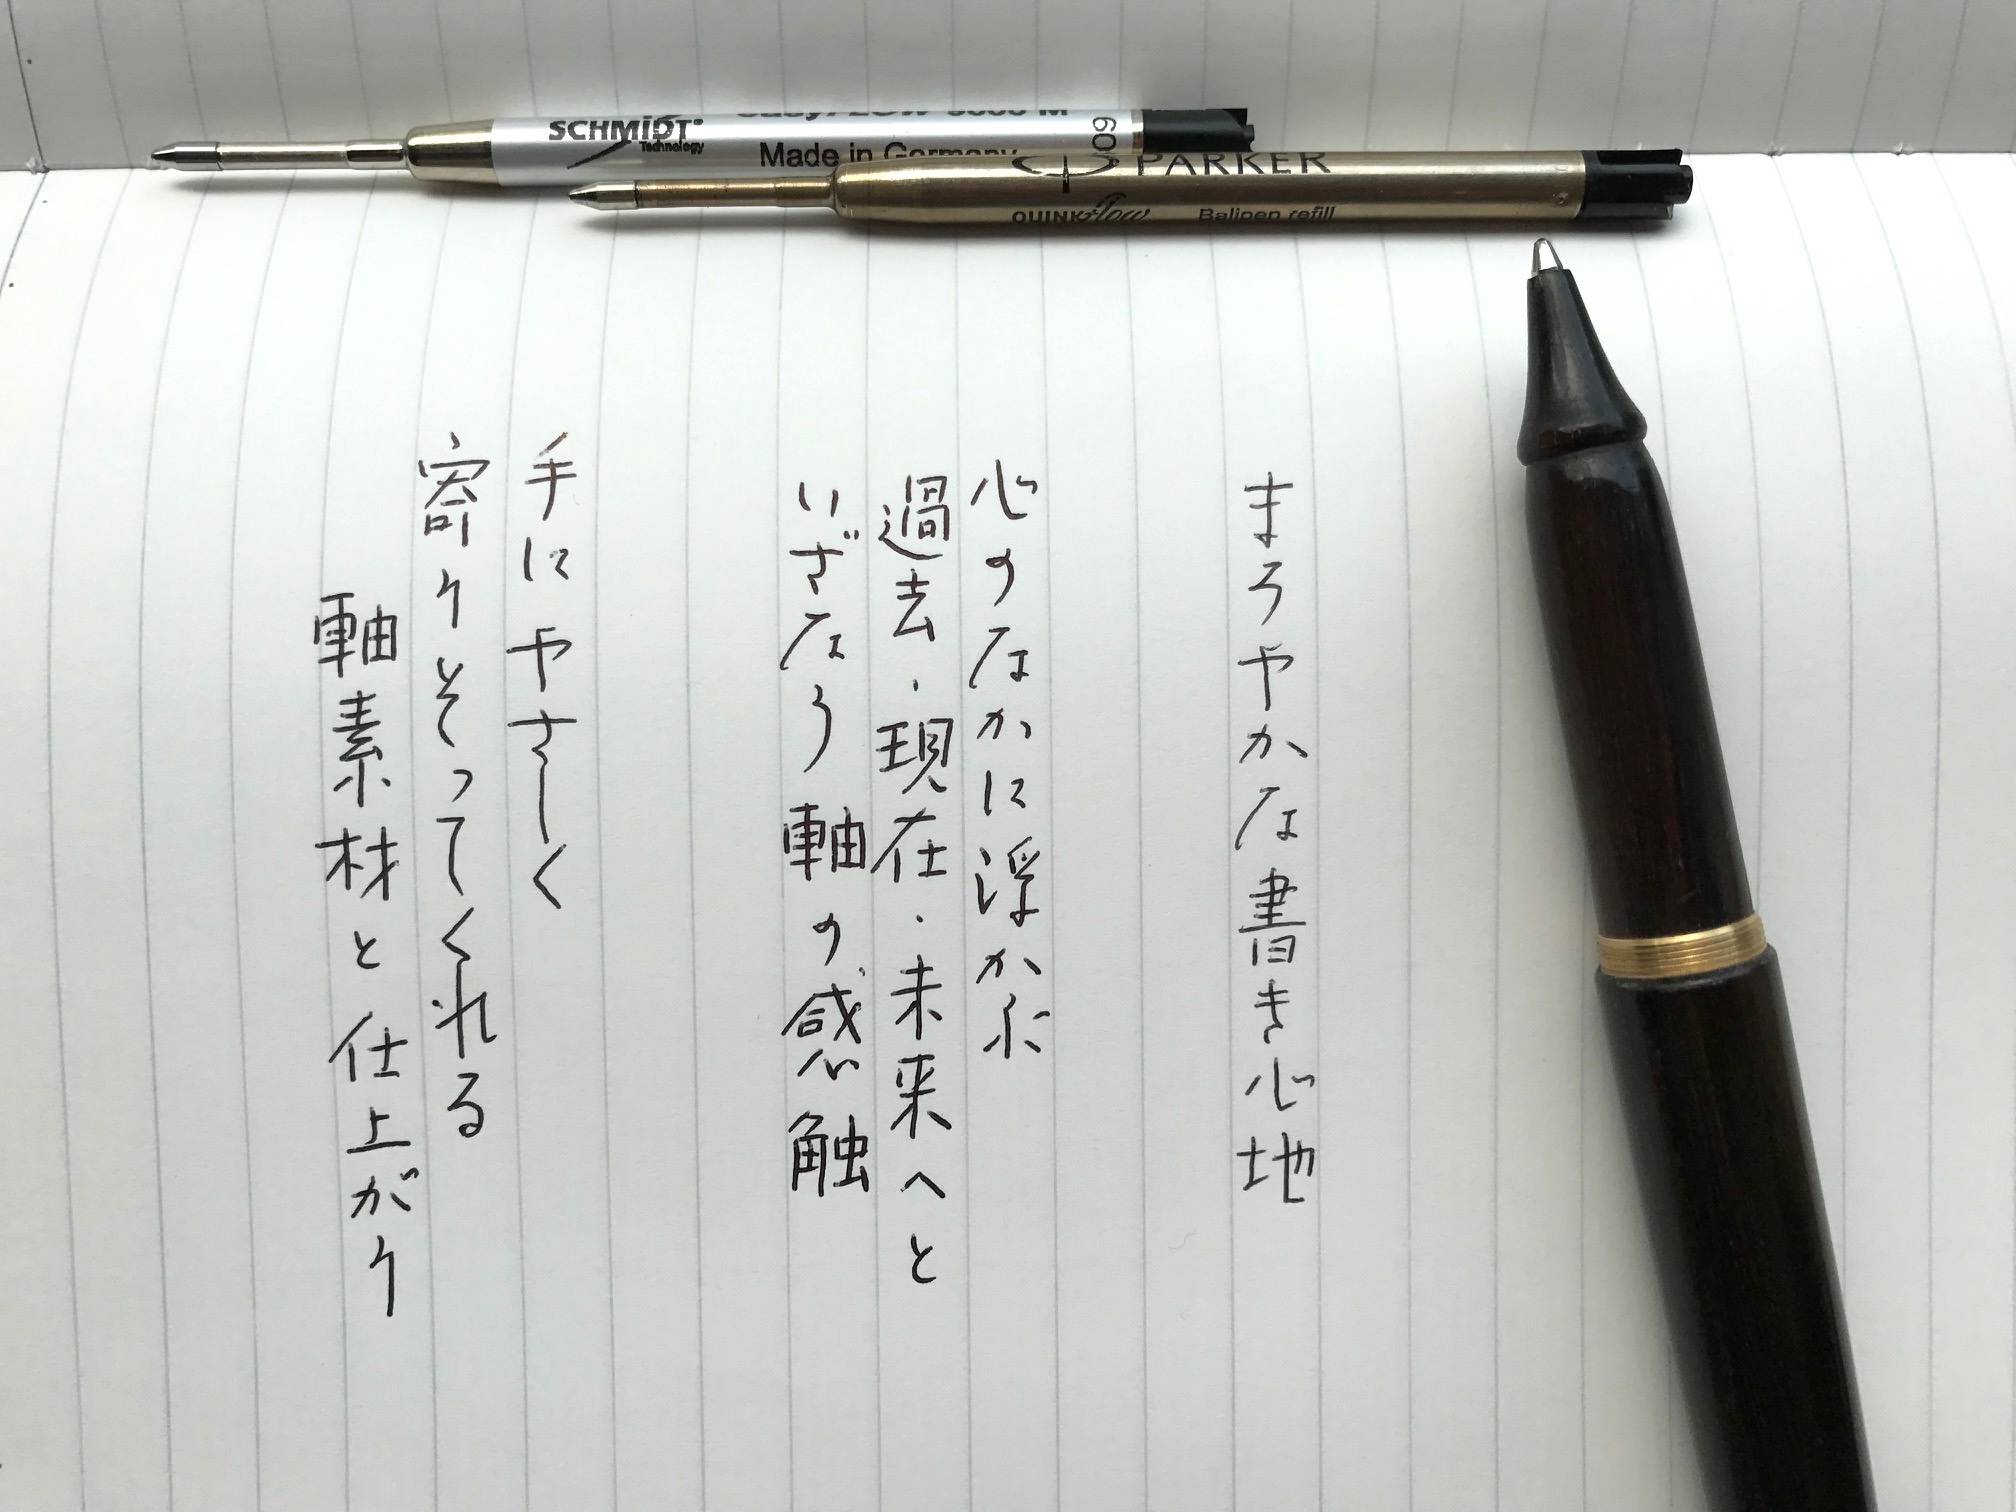 SCHMIDT
Technology
Made in Germany
09
PARKER
QUINKflow Ballpen refill
まろやかな書き心地
心のなかに浮かぶ
過去・現在・未来へと
いざなう軸の感触
手にやさしく
寄りそってくれる
軸素材と仕上がり